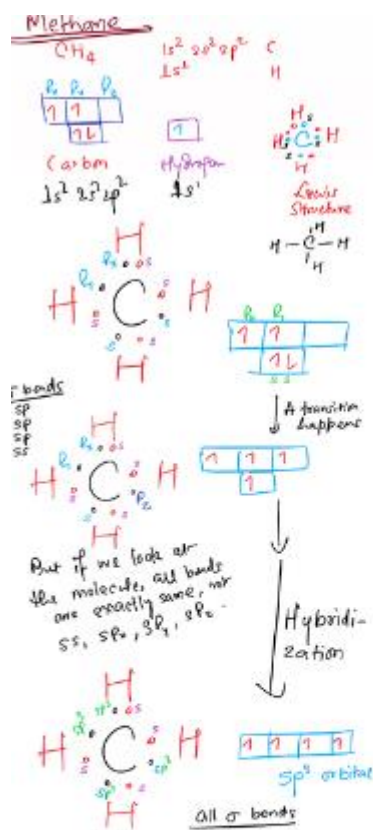 Methane
CH4 1s² 2s² 2p² C
1s¹ H
Px Py Pz
1 1
1 1
Carbon Hydrogen
1s² 2s² 2p² 1s¹
H
H C H
H
Lewis
Structure
H
H-C-H
H
H
Px
Py s
H C H
s s
s s
H
Px Py
1 1
1 1
s s
bonds
sp
sp
sp
ss
A transition
happens
H
Px
Py s
H C H
s Pz
s s
H
1 1 1
1
But if we look at
the molecule, all bonds
are exactly same, not
ss, spx, spy, spz.
Hybridi-
zation
H
sp³ sp³ s
H C H
s sp³
sp³ s
H
1 1 1 1
sp³ orbital
all σ bonds